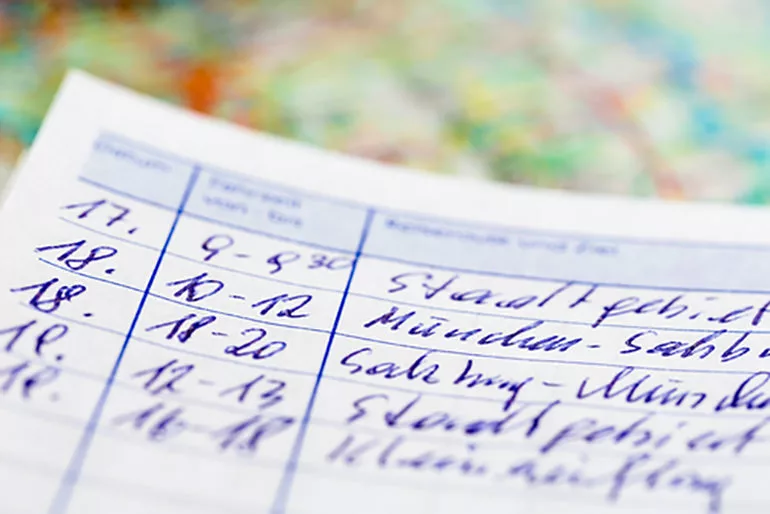 Datum Fahrzeit Reiseroute und Ziel
von - bis
17. 9-9 30 Stadtgebiet
18. 10-12 München-Salzb
18. 18-20 Salzburg-Münche
19. 12-13 Stadtgebiet
19. 16-18